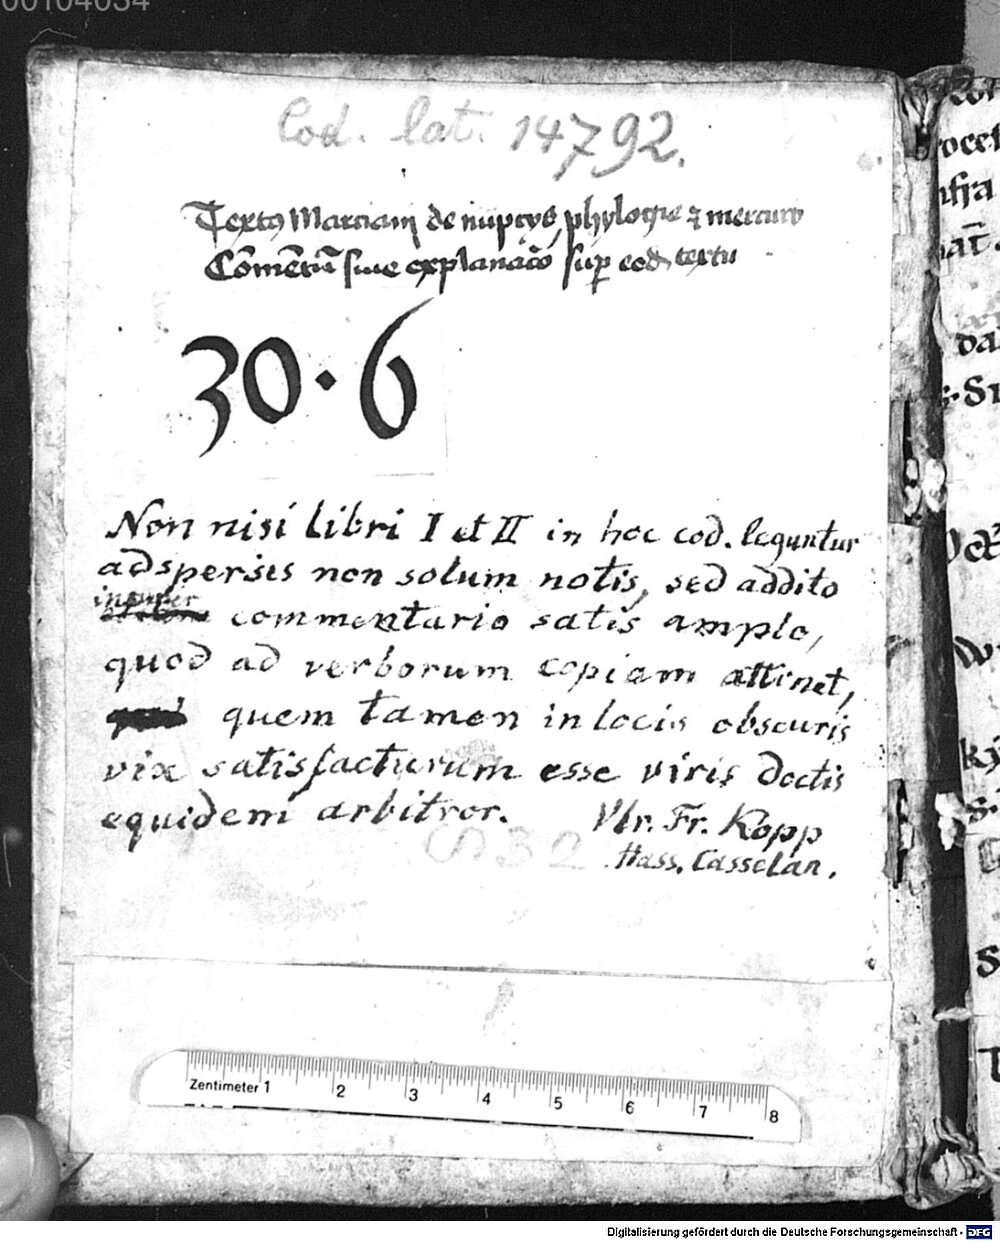 00104034
Cod. lat. 14792.
Textus Marciani de nuptys phylogie et mercury
Comentũ siue explanacõ sup eodẽ textu
30·6
Non nisi libri I et II in hoc cod. leguntur
adspersis non solum notis, sed addito
insuper
commentario satis amplo,
quod ad verborum copiam attinet,
quem tamen in locis obscuris
vix satisfacturum esse viris doctis
equidem arbitror. Ulr. Fr. Kopp
Hass. Casselan.
Zentimeter 1 2 3 4 5 6 7 8
Digitalisierung gefördert durch die Deutsche Forschungsgemeinschaft - DFG